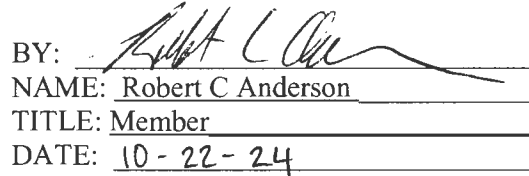 BY: Robert C Anderson
NAME: Robert C Anderson
TITLE: Member
DATE: 10-22-24